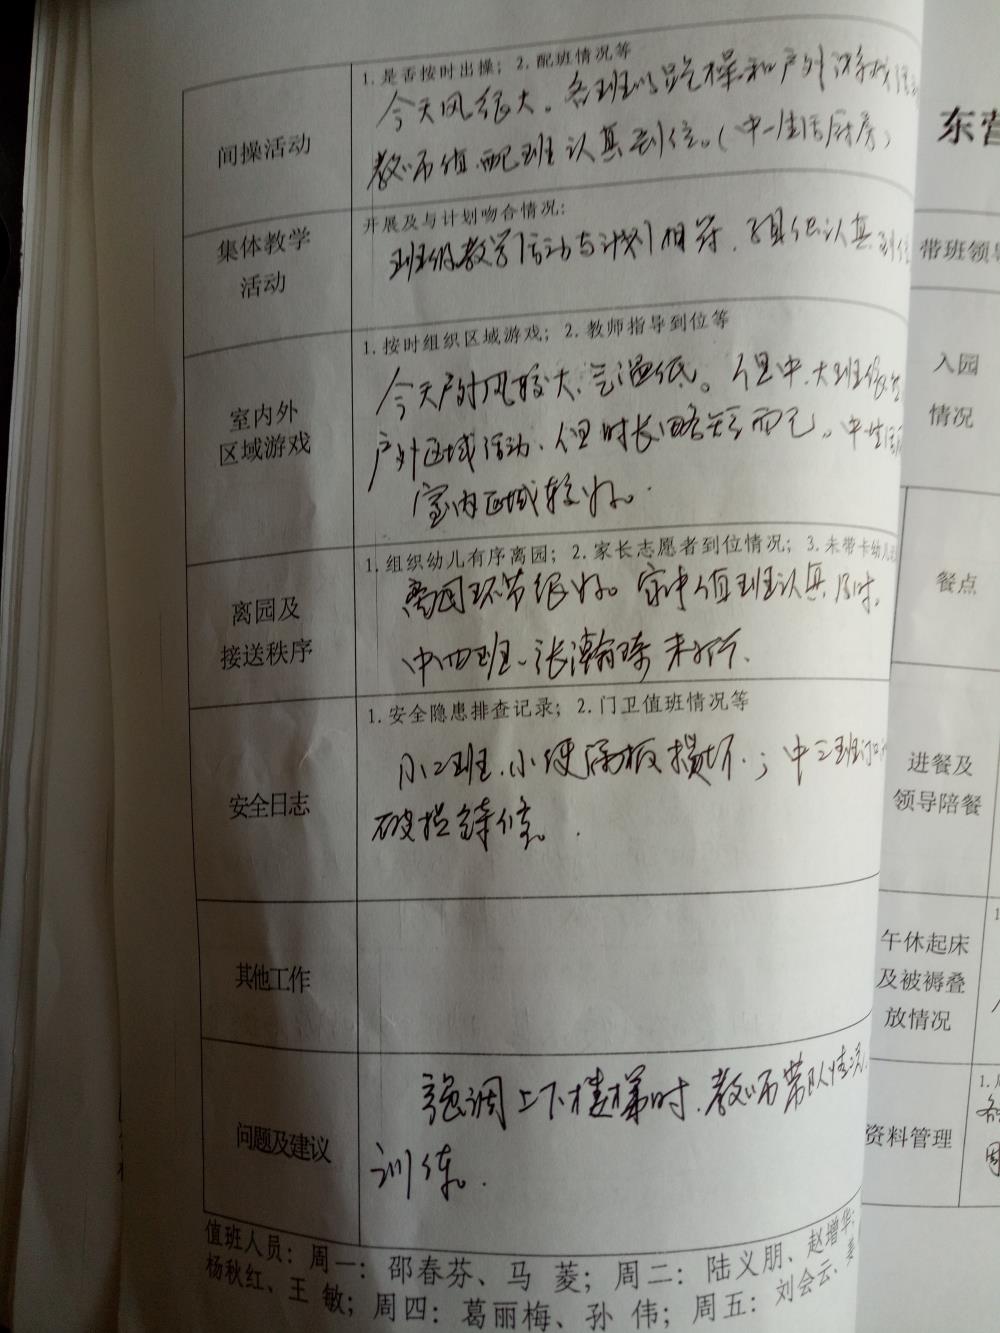 1. 是否按时出操；2. 配班情况等
间操活动
今天风很大。各班以室操和户外游戏
教师值、配班认真到位。(中一生活厨房)
集体教学
活动
开展及与计划吻合情况：
班级教学活动与计划相符，认真到位
室内外
区域游戏
1. 按时组织区域游戏；2. 教师指导到位等
今天户外风较大、气温低。但中、大班级
户外区域活动、但时长略短而已。中一生活
室内区域较好。
离园及
接送秩序
1. 组织幼儿有序离园；2. 家长志愿者到位情况；3. 未带卡幼儿
离园环节很好。家中值班认真及时。
中四班、张瀚琦未
安全日志
1. 安全隐患排查记录；2. 门卫值班情况等
小二班、小便隔板损坏；中三班门口
破损待修。
其他工作
问题及建议
强调上下楼梯时、教师带队情况
训练。
值班人员：周一：邵春芬、马 菱；周二：陆义朋、赵增华；
杨秋红、王 敏；周四：葛丽梅、孙 伟；周五：刘会云、姜
东营
带班领导
入园
情况
餐点
进餐及
领导陪餐
午休起床
及被褥叠
放情况
资料管理